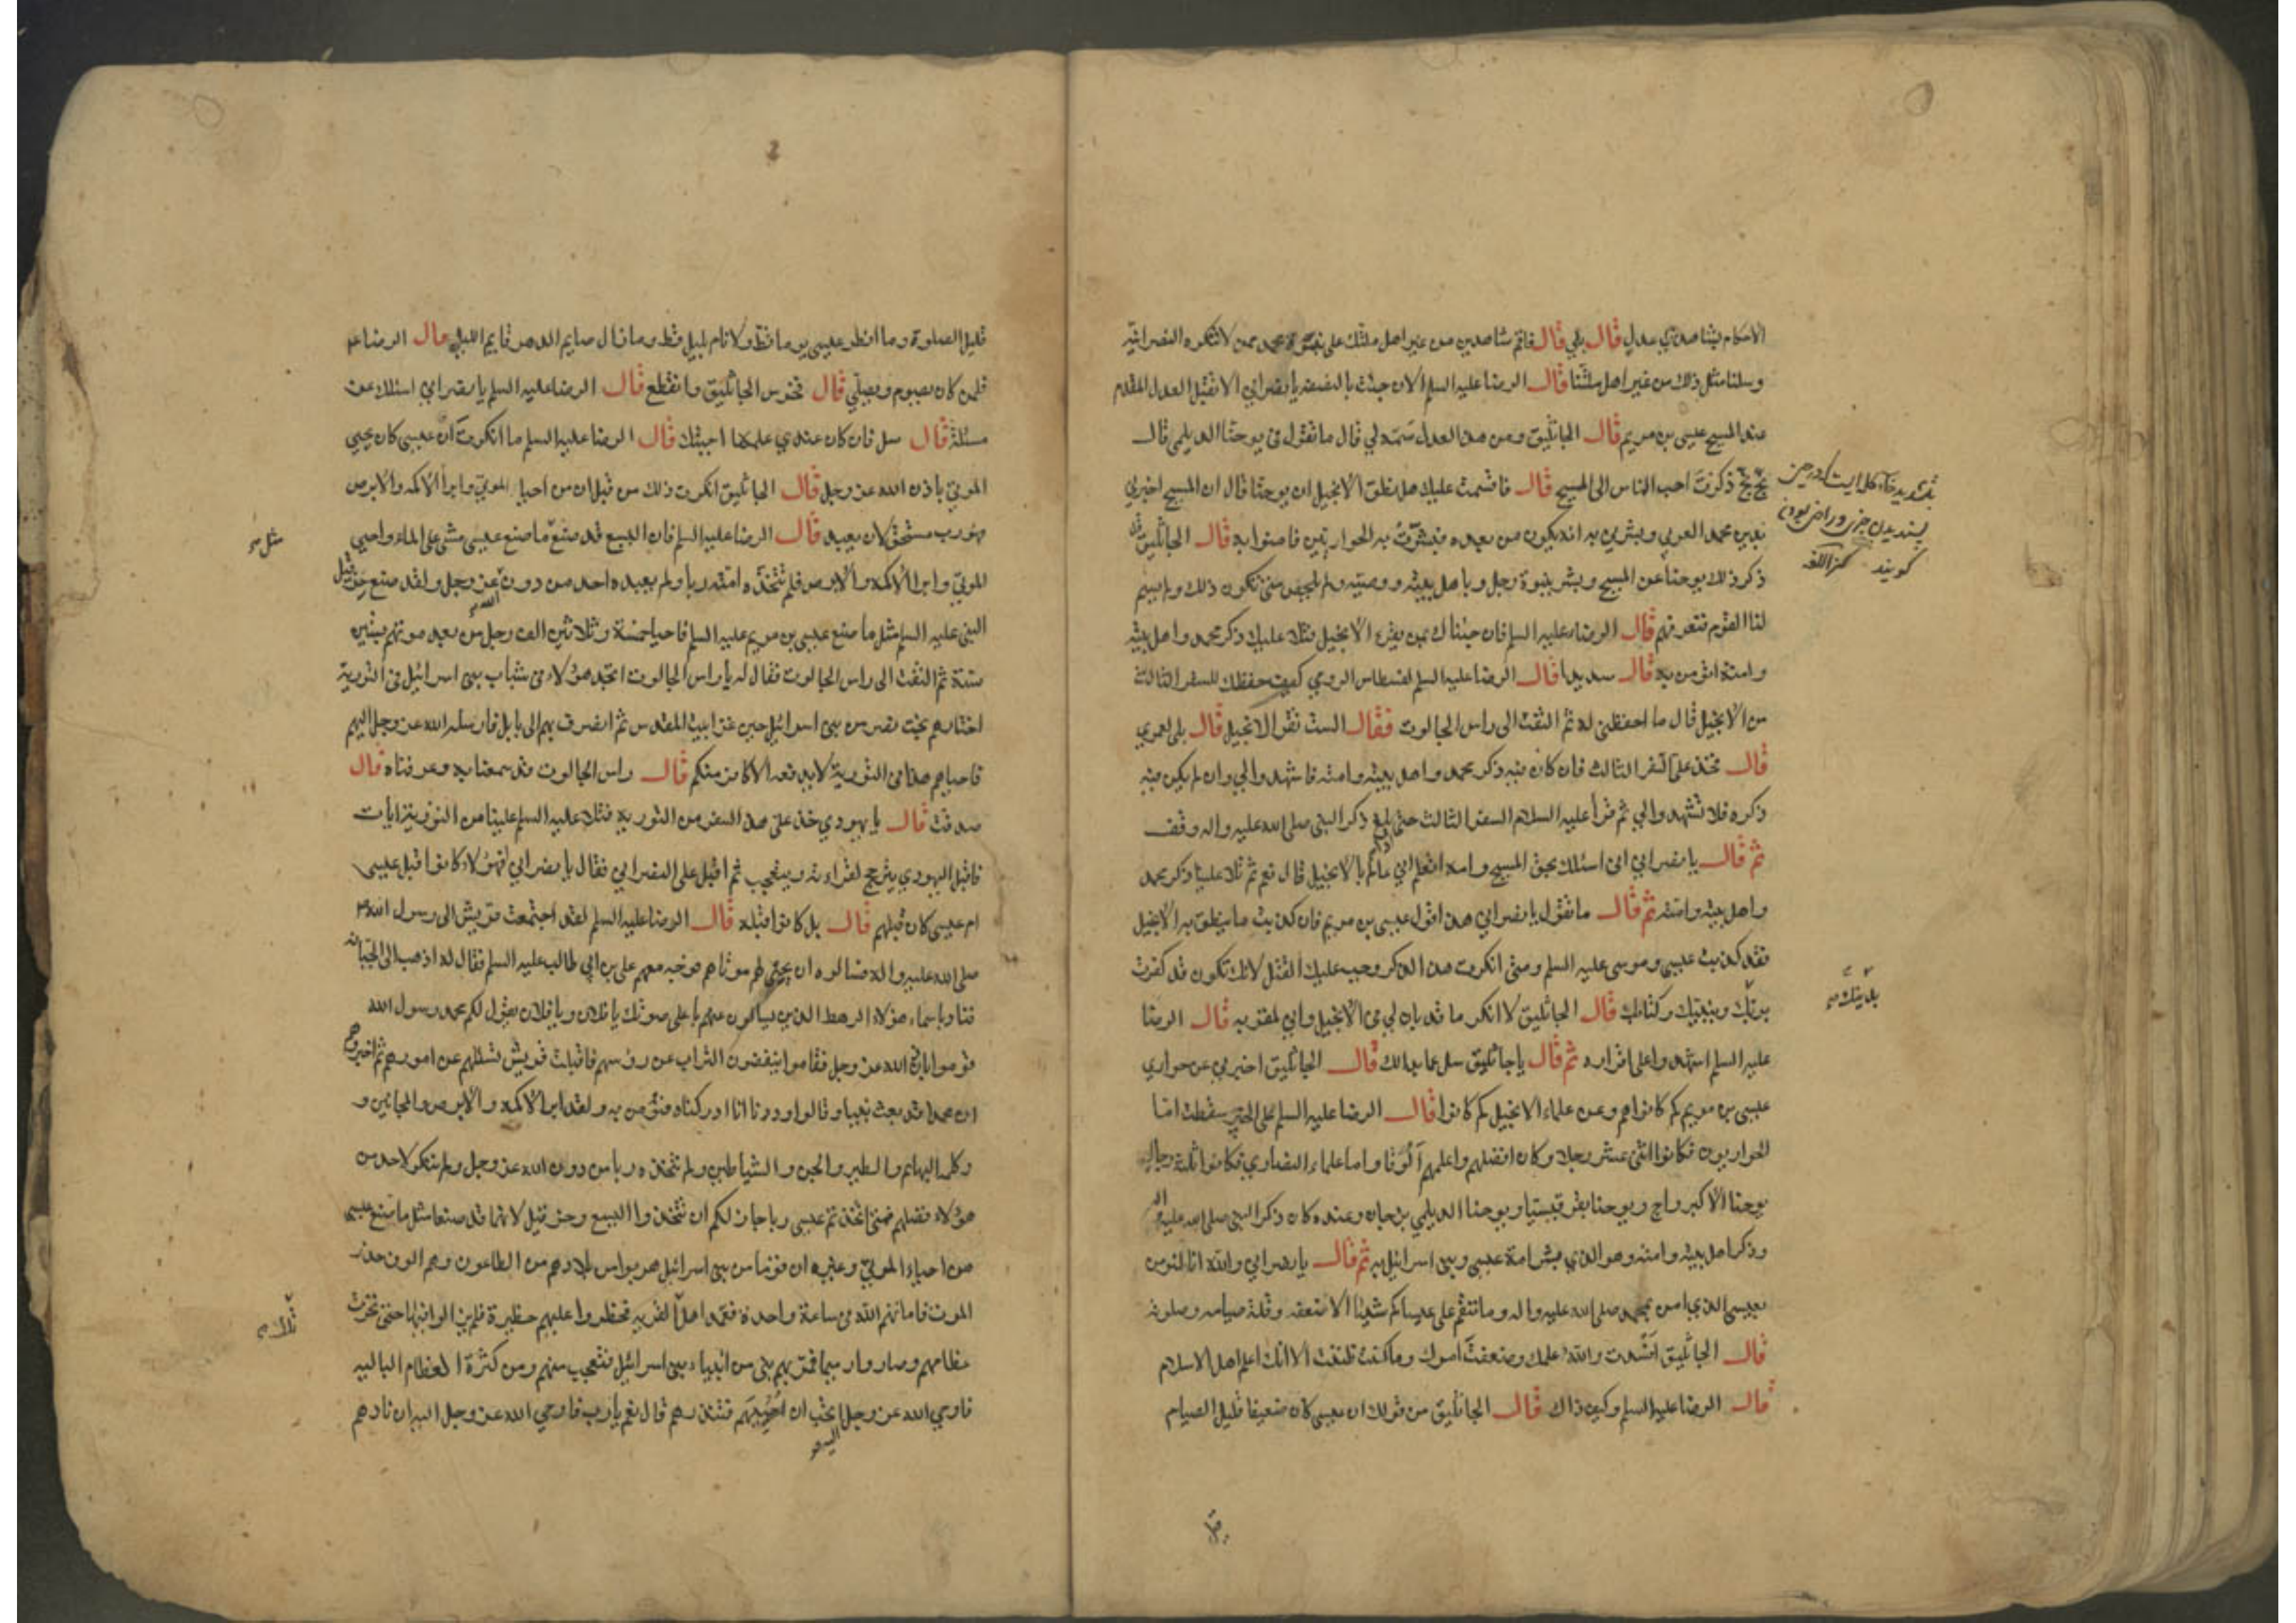 الاحكام بشاهدي عدل قال بلي قال فاقم شاهدين من غير اهل ملتك على نبوة محمد ممن لا تنكره النصرانية
وسلنا مثل ذلك من غير اهل ملتنا قال الرضا عليه السلم الان جئت بالنصفة يا نصراني الا تقبل العدل المقدم
عند المسيح عيسى بن مريم قال الجاثليق ومن هذا العدل سمه لي قال ما تقول في يوحنا الديلمي قال
بخ بخ ذكرت احب الناس الى المسيح قال فاقسمت عليك هل نطق الانجيل ان يوحنا قال ان المسيح اخبرني
بدين محمد العربي وبشرني به انه يكون من بعده فبشرت به الحواريين فامنوا به قال الجاثليق قد
ذكر ذلك يوحنا عن المسيح وبشر بنبوة رجل وباهل بيته ووصيه ولم يلخص متى يكون ذلك ولم يسم
لنا القوم فنعرفهم قال الرضا عليه السلم فان جئناك بمن يقرء الانجيل فتلا عليك ذكر محمد واهل بيته
وامته اتؤمن به قال سديدا قال الرضا عليه السلم لقسطاس الرومي كيف حفظك للسفر الثالث
من الانجيل قال ما احفظني له ثم التفت الى راس الجالوت فقال الست تقرا الانجيل قال بلى لعمري
قال فخذ على السفر الثالث فان كان فيه ذكر محمد واهل بيته وامته فاشهدوا لي وان لم يكن فيه
ذكره فلا تشهدوا لي ثم قرأ عليه السلام السفر الثالث حتى بلغ ذكر النبي صلى الله عليه واله وقف
ثم قال يا نصراني اني اسئلك بحق المسيح وامه اتعلم اني عالم بالانجيل قال نعم ثم تلا علينا ذكر محمد
واهل بيته وامته ثم قال ما تقول يا نصراني هذا قول عيسى بن مريم فان كذبت ما ينطق به الانجيل
فقد كذبت عيسى وموسى عليه السلم ومتى انكرت هذا الذكر وجب عليك القتل لانك تكون قد كفرت
بربك وبنبيك وكتابك قال الجاثليق لا انكر ما قد بان لي في الانجيل واني لمقر به قال الرضا
عليه السلم اشهدوا على اقراره ثم قال يا جاثليق سل عما بدا لك قال الجاثليق اخبرني عن حواري
عيسى بن مريم كم كانوا هم وعن علماء الانجيل كم كانوا قال الرضا عليه السلم على الخبير سقطت اما
الحواريون فكانوا اثنى عشر رجلا وكان افضلهم واعلمهم الوقا واما علماء النصارى فكانوا ثلثة رجال
يوحنا الاكبر واج ويوحنا بقرقيسيا ويوحنا الديلمي بزجان وعنده كان ذكر النبي صلى الله عليه واله
وذكر اهل بيته وامته وهو الذي بشر امة عيسى وبني اسرائيل به ثم قال يا نصراني والله انا لنؤمن
بعيسى الذي امن بمحمد صلى الله عليه واله وما ننقم على عيساكم شيئا الا ضعفه وقلة صيامه وصلوته
قال الجاثليق افسدت والله علمك وضعفت امرك وما كنت ظننت الا انك اعلم اهل الاسلام
قال الرضا عليه السلم وكيف ذاك قال الجاثليق من قولك ان عيسى كان ضعيفا قليل الصيام
بتشديد خاء كلمه ايست كه در حين
پسنديدن چيزى وراضى بودن
گويند كنز اللغه
قليل الصلوة وما افطر عيسى يوما قط ولا نام بليل قط وما زال صايم الدهر قايم الليل قال الرضا ع
فلمن كان يصوم ويصلي قال فخرس الجاثليق وانقطع قال الرضا عليه السلم يا نصراني اسئلك عن
مسئلة قال سل فان كان عندي علمها اجبتك قال الرضا عليه السلم ما انكرت ان عيسى كان يحيي
الموتي باذن الله عز وجل قال الجاثليق انكرت ذلك من قبل ان من احيا الموتي وابرأ الاكمه والابرص
فهو رب مستحق لان يعبد قال الرضا عليه السلم فان اليسع قد صنع ما صنع عيسى مشى على الماء واحيى
الموتي وابرا الاكمه والابرص فلم تتخذه امته ربا ولم يعبده احد من دون الله عز وجل ولقد صنع حزقيل
النبي عليه السلم مثل ما صنع عيسى بن مريم عليه السلم فاحيا خمسة وثلاثين الف رجل من بعد موتهم بستين
سنة ثم التفت الى راس الجالوت فقال له يا راس الجالوت اتجد هؤلاء في شباب بني اسرائيل في التورية
اختارهم بخت نصر من بني اسرائيل حين غزا بيت المقدس ثم انصرف بهم الى بابل فارسله الله عز وجل اليهم
فاحياهم هذا في التورية لا يدفعه الا كافر منكم قال راس الجالوت قد سمعنا به وعرفناه قال
صدقت قال يا يهودي خذ على هذا السفر من التورية فتلا عليه السلم علينا من التورية ايات
فاقبل اليهودي يترجح لقراءته ويتعجب ثم اقبل على النصراني فقال يا نصراني افهؤلاء كانوا قبل عيسى
ام عيسى كان قبلهم قال بل كانوا قبله قال الرضا عليه السلم لقد اجتمعت قريش الى رسول الله
صلى الله عليه واله فسالوه ان يحيي لهم موتاهم فوجه معهم علي بن ابي طالب عليه السلم فقال له اذهب الى الجبانة
فناد باسماء هؤلاء الرهط الذين يسالون عنهم باعلى صوتك يا فلان ويا فلان يقول لكم محمد رسول الله
قوموا باذن الله عز وجل فقاموا ينفضون التراب عن رؤسهم فاقبلت قريش تسئلهم عن امورهم ثم اخبروهم
ان محمدا قد بعث نبيا وقالوا وددنا انا ادركناه فنؤمن به ولقد ابرا الاكمه والابرص والمجانين و
وكلمه البهائم والطير والجن والشياطين ولم نتخذه ربا من دون الله عز وجل ولم ننكر لاحد من
هؤلاء فضلهم فمتى اتخذتم عيسى ربا جاز لكم ان تتخذوا اليسع وحزقيل لانهما قد صنعا مثل ما صنع عيسى
من احياء الموتي وغيره ان قوما من بني اسرائيل هربوا من بلادهم من الطاعون وهم الوف حذر
الموت فاماتهم الله في ساعة واحدة فعمد اهل القرية فحظروا عليهم حظيرة فلم يزالوا فيها حتى نخرت
عظامهم وصاروا رميما فمر بهم نبي من انبياء بني اسرائيل فتعجب منهم ومن كثرة العظام البالية
فاوحي الله عز وجل اتحب ان احييهم فتنذرهم قال نعم يا رب فاوحي الله عز وجل اليه ان نادهم
اليه
مثل